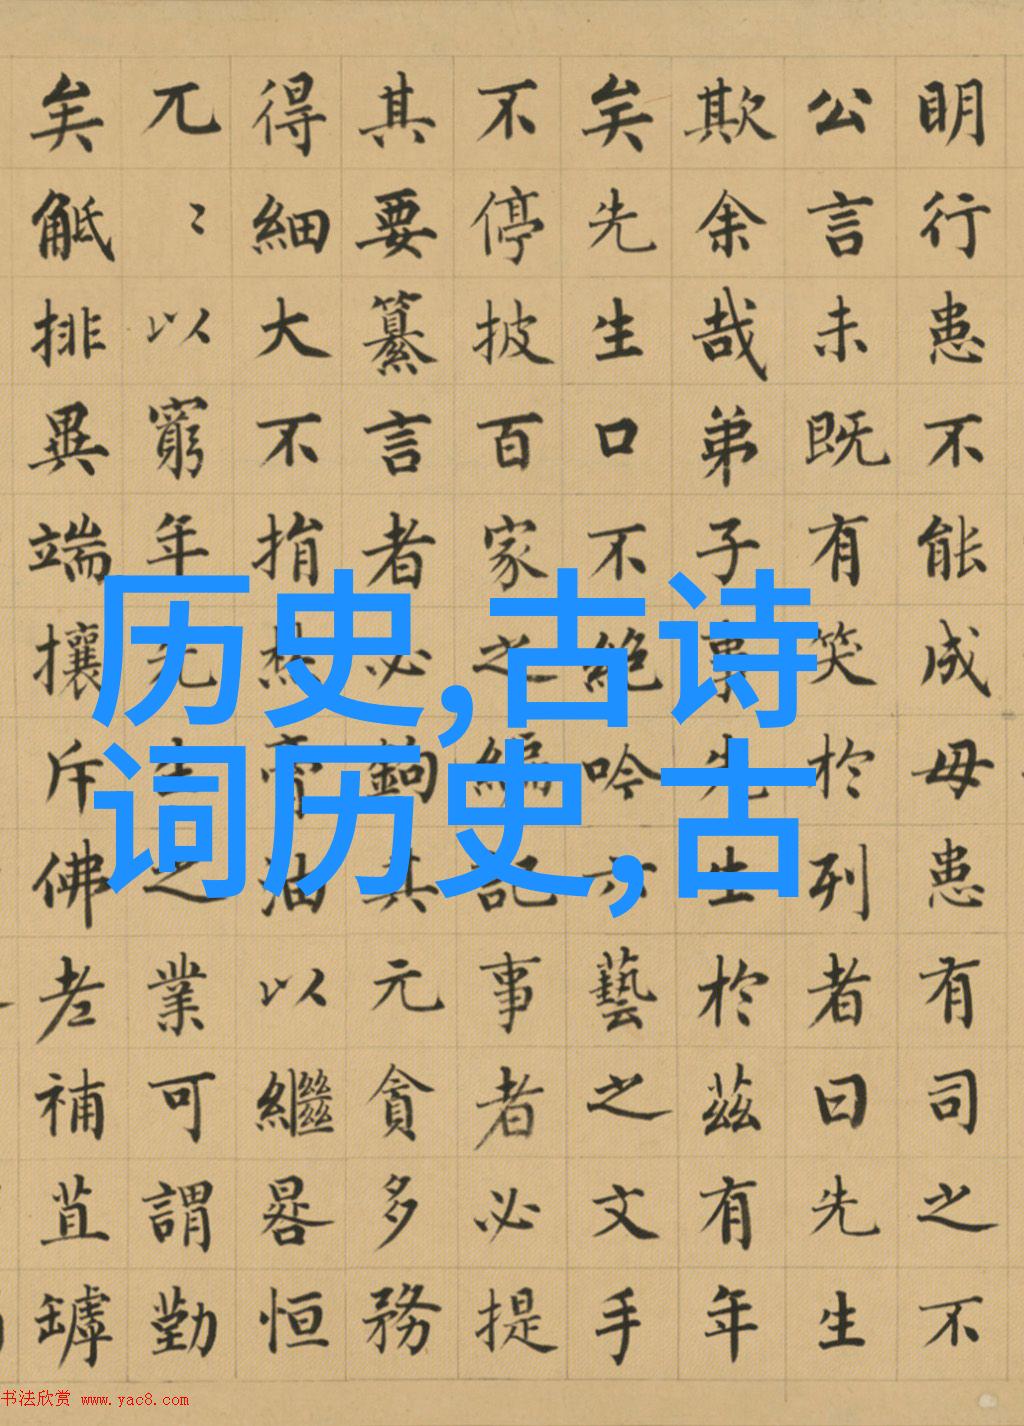 明行患不能成毋患有司之不
公言未既有笑於列者曰先生
欺余哉弟子事先生於茲有年
矣先生口不絕吟六藝之文手
不停披百家之編記事者必提
其要纂言者必鉤其元貪多務
得細大不捐焚膏油以繼晷恒
兀〻以窮年先生之業可謂勤
矣觝排異端攘斥佛老補苴罅
历史,古诗
词历史,古
书法欣赏 www.yac8.com